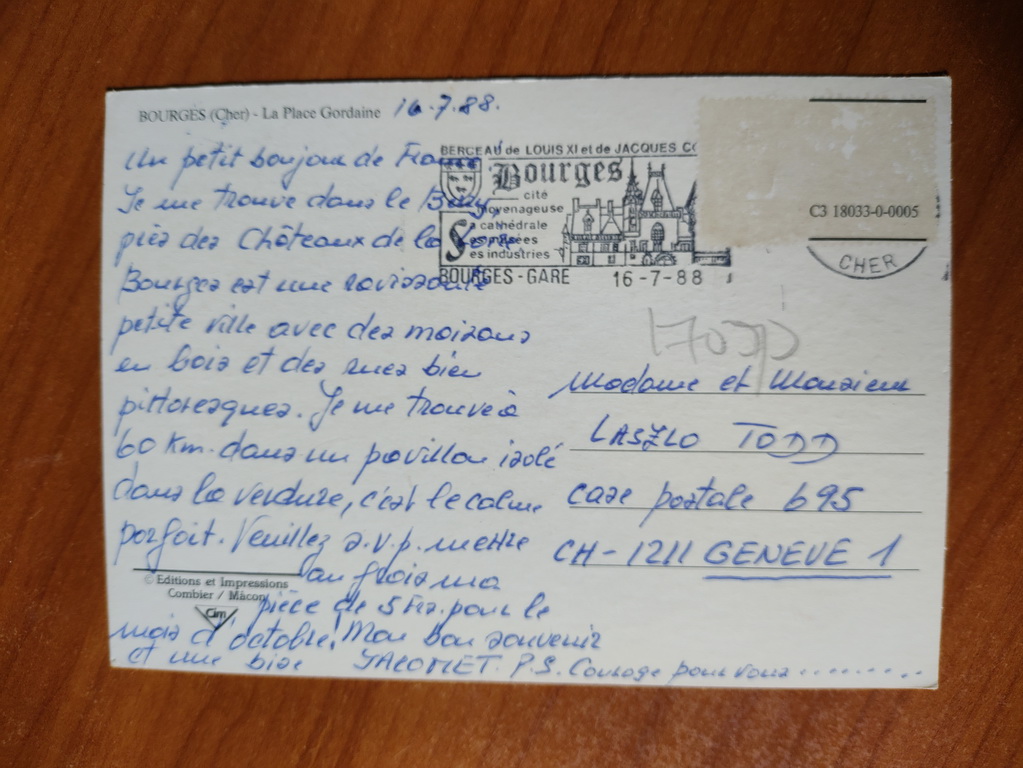 BOURGES (Cher) - La Place Gordaine 16.7.88.
Un petit bonjour de France
Je me trouve dans le Berry,
près des Châteaux de la Loire.
Bourges est une ravissante
petite ville avec des maisons
en bois et des rues bien
pittoresques. Je me trouve à
60 Km. dans un pavillon isolé
dans la verdure, c'est le calme
parfait. Veuillez s.v.p. mettre
au frois ma
pièce de 5 Frs. pour le
mois d'octobre! Mon bon souvenir
et une bise JACOMET. P.S. Courage pour vous.........
© Editions et Impressions
Combier / Mâcon
Cim
BERCEAU de LOUIS XI et de JACQUES
Bourges
cité
moyenageuse
Sa cathédrale
Ses musées
Ses industries
BOURGES-GARE 16-7-88
C3 18033-0-0005
CHER
Madame et Monsieur
LASZLO TODD
case postale 695
CH-1211 GENEVE 1